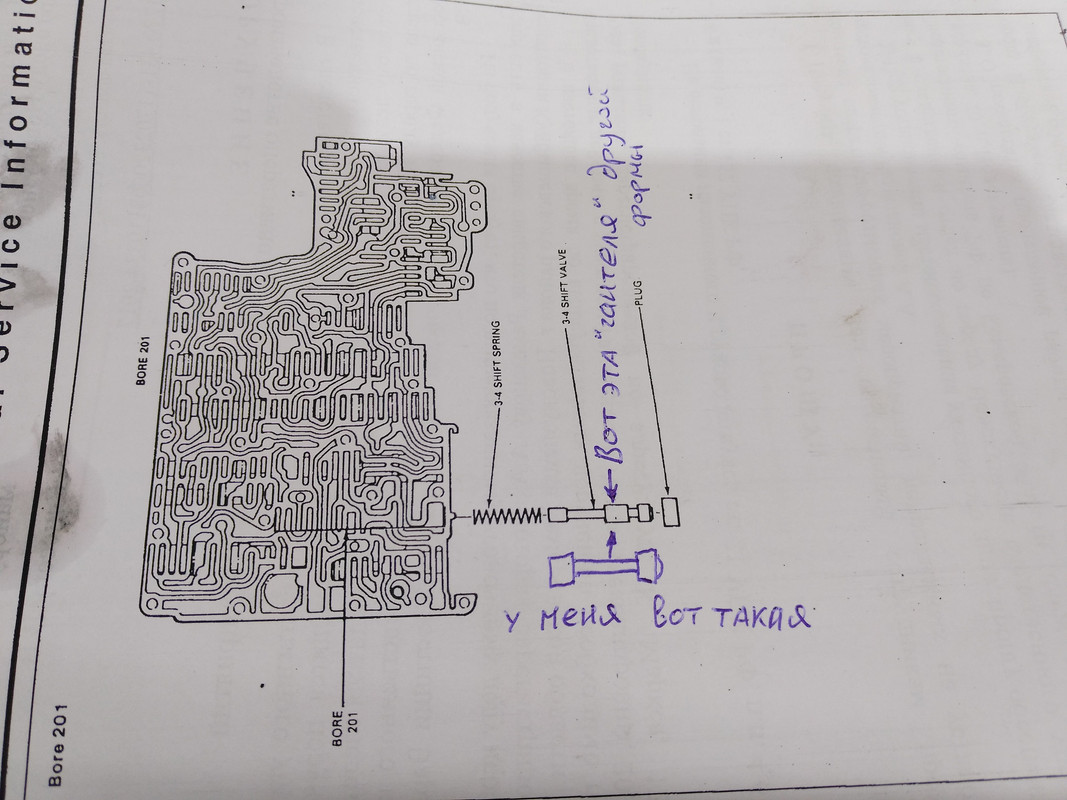 Service Informatio
Bore 201
BORE 201
BORE
201
3-4 SHIFT SPRING
3-4 SHIFT VALVE
PLUG
← Вот эта "гантеля" другой
формы
у меня вот такая